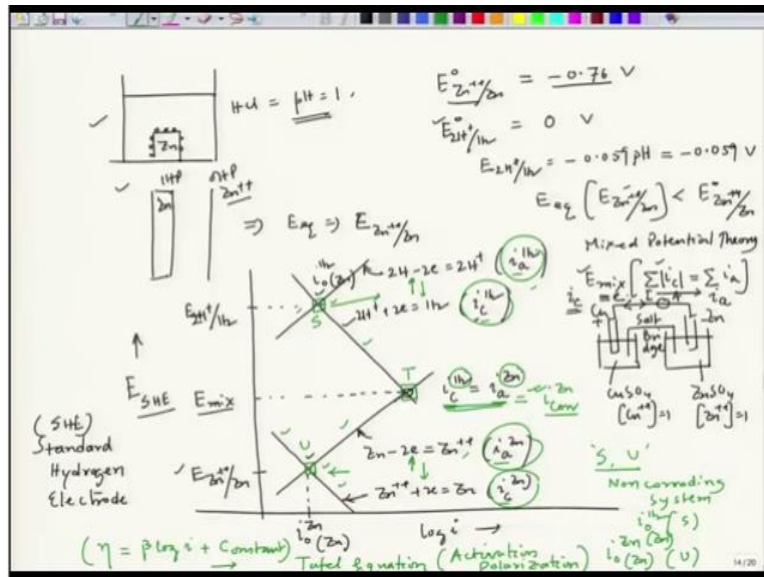 HCl = pH = 1 ,
Zn
E°Zn++/Zn = -0.76 V
E°2H+/H2 = 0 V
E2H+/H2 = -0.059 pH = -0.059 V
Eeq [EZn++/Zn] < E°Zn++/Zn
IHP OHP
Zn Zn++
⇒ Eeq ⇒ EZn++/Zn
Mixed Potential Theory
Emix [Σ|ic| = Σ ia]
ia
Zn
Salt
Bridge
CuSO4 ZnSO4
[Cu++]=1 [Zn++]=1
i0H2(Zn)
2H - 2e = 2H+ (iaH2)
2H+ + 2e = H2 (icH2)
E2H+/H2
S
↑
ESHE
Emix
T
icH2 = iaZn = iZncorr
(SHE)
Standard
Hydrogen
Electrode
U
Zn - 2e = Zn++ (iaZn)
Zn++ + 2e = Zn (icZn)
EZn++/Zn
i0Zn(Zn)
log i →
'S, U'
Non corroding
System
i0H2(Zn) (S)
i0Zn(Zn) (U)
(η = β log i + Constant)
→ Tafel Equation (Activation Polarization)
14/20